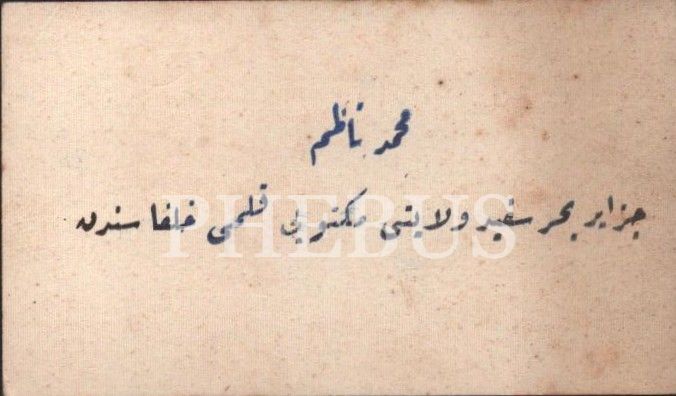 محمد ناظم
جزایر بحر سفید ولایتی مکتوبی قلمی خلفا سندن
PHEBUS